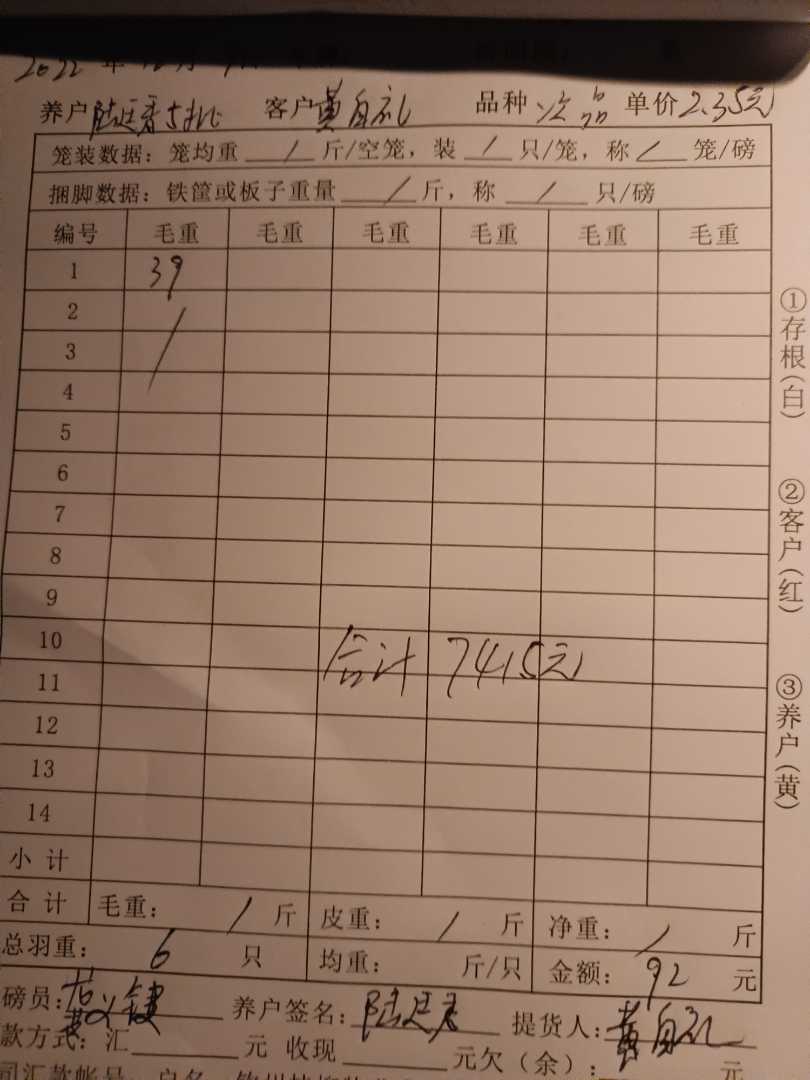 2022年
养户 陆廷君5批 客户 黄自礼 品种 次品 单价 2.35元
笼装数据：笼均重 / 斤/空笼，装 / 只/笼，称 / 笼/磅
捆脚数据：铁筐或板子重量 / 斤，称 / 只/磅
编号 毛重 毛重 毛重 毛重 毛重 毛重
1 39
2 /
3
4
5
6
7
8
9
10
合计 7415元
11
12
13
14
小计
合计 毛重： / 斤 皮重： / 斤 净重： / 斤
总羽重： 6 只 均重： 斤/只 金额： 92 元
磅员： 养户签名：陆廷君 提货人：黄自礼
款方式：汇 元 收现 元欠（余）： 元
司汇款帐号：户名：钦州
①存根（白）
②客户（红）
③养户（黄）